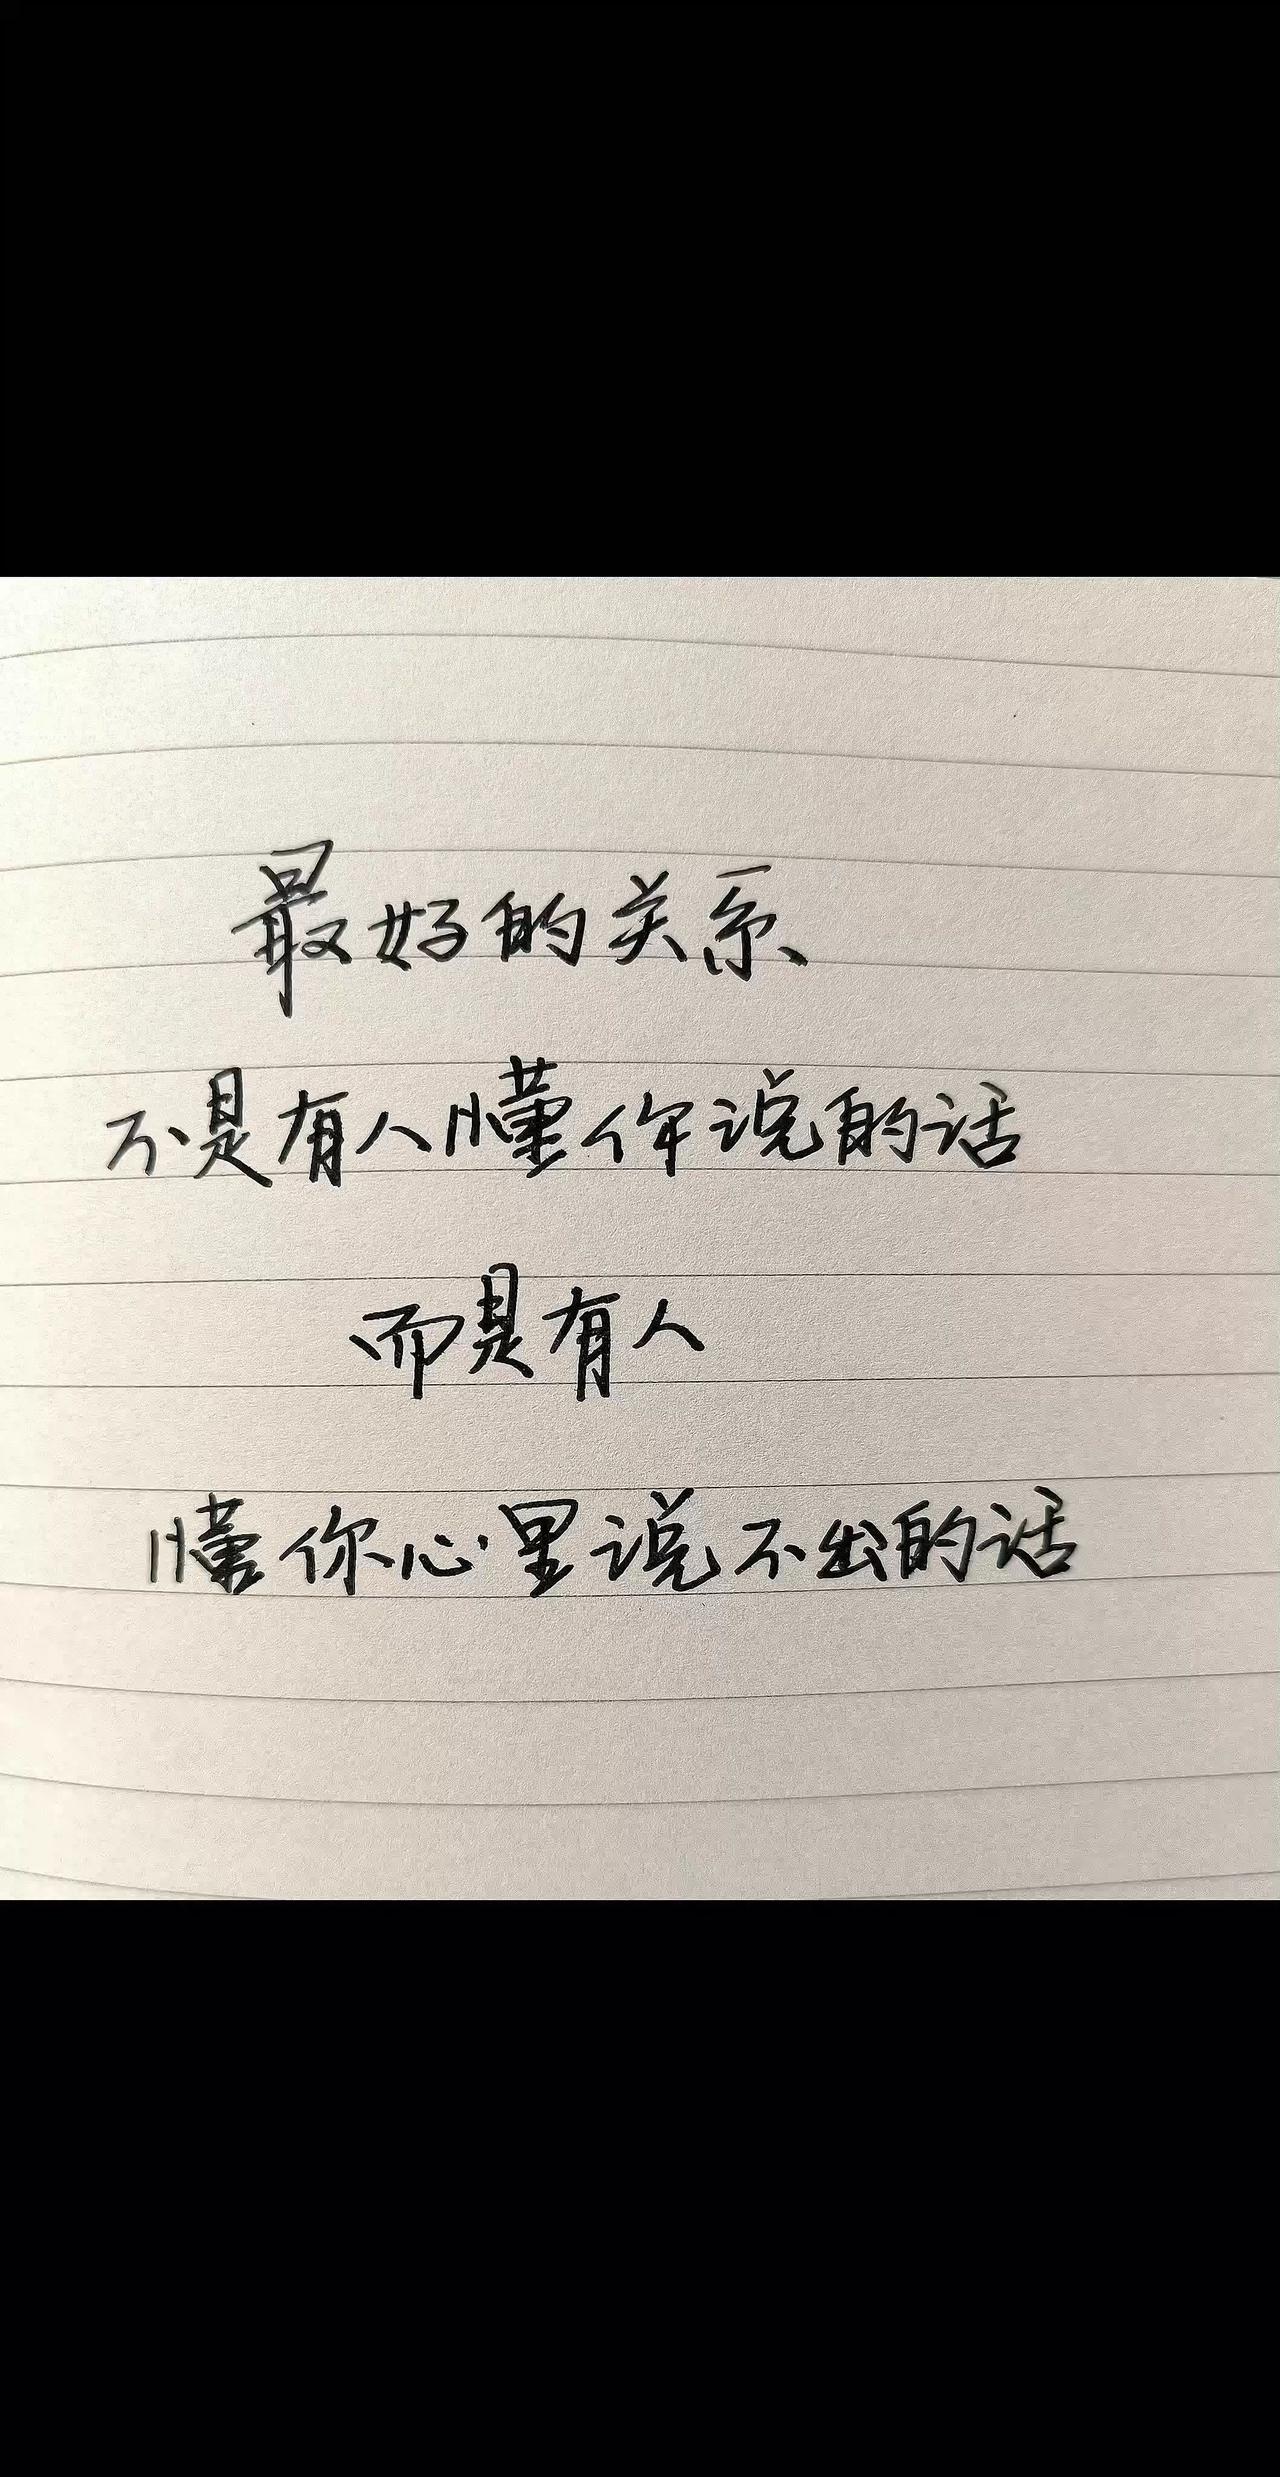 最好的关系
不是有人懂你说的话
而是有人
懂你心里说不出的话